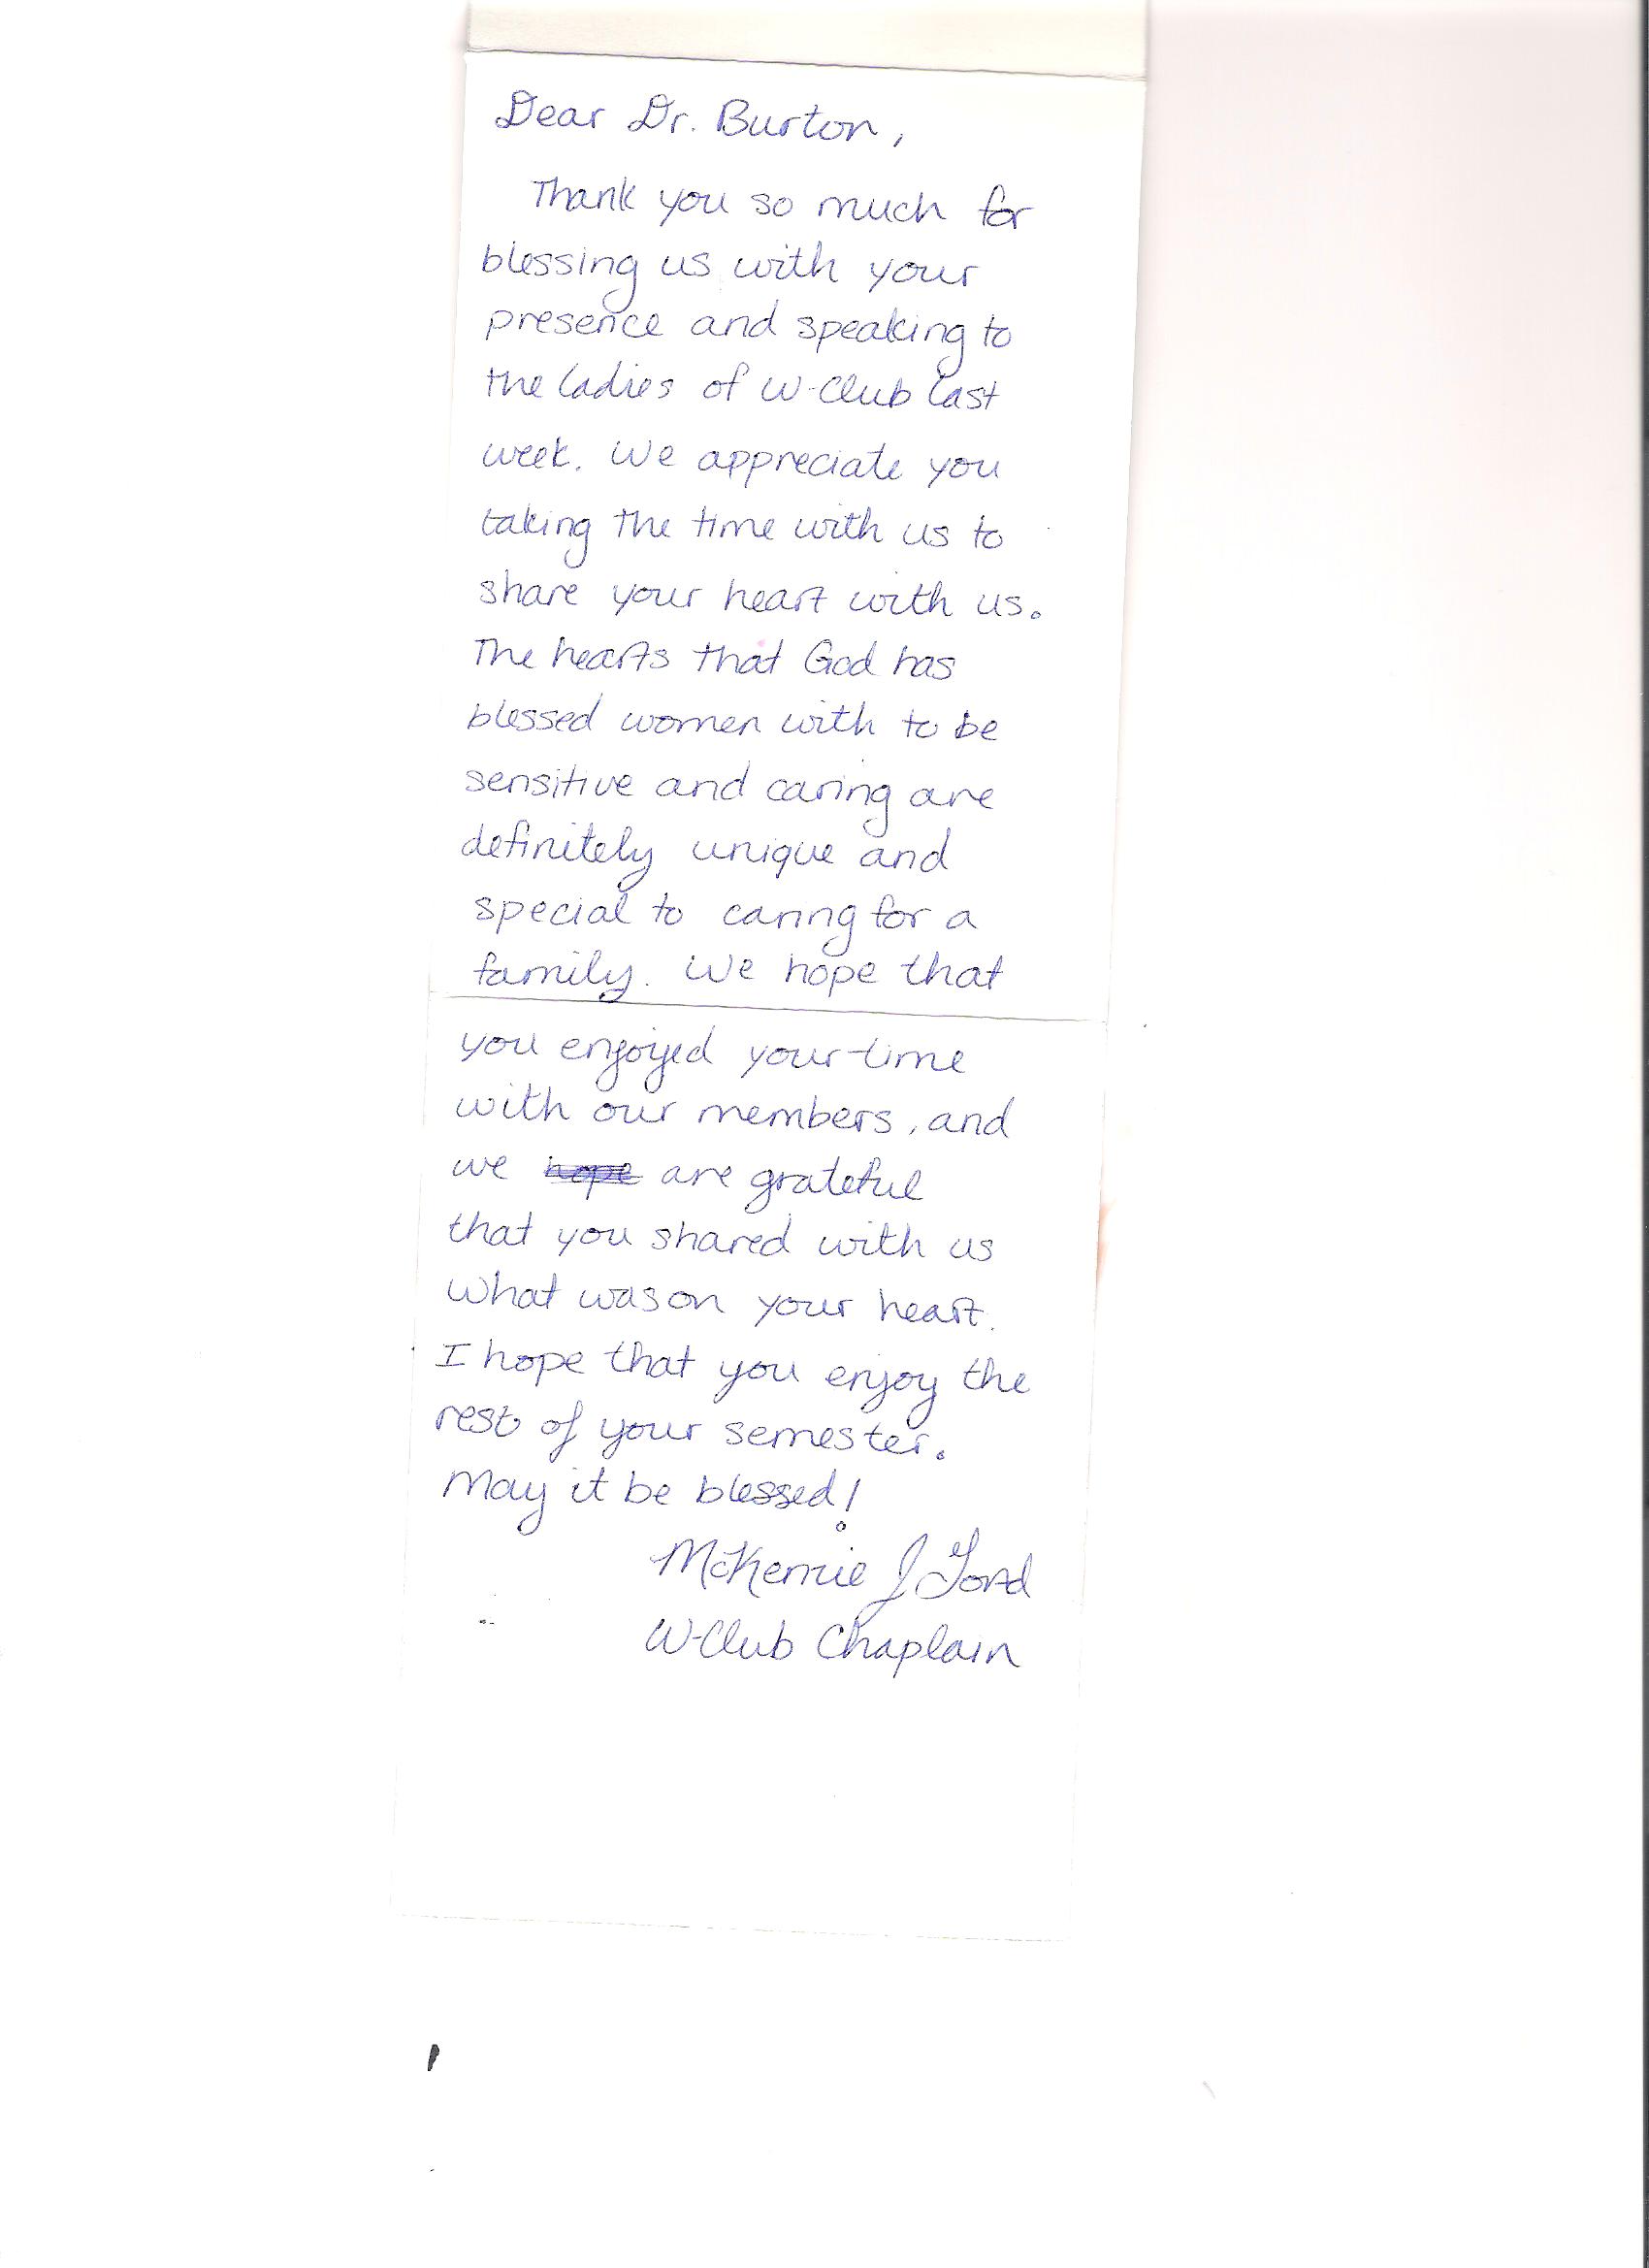 Dear Dr. Burton,
Thank you so much for
blessing us with your
presence and speaking to
the ladies of W-Club last
week. We appreciate you
taking the time with us to
share your heart with us.
The hearts that God has
blessed women with to be
sensitive and caring are
definitely unique and
special to caring for a
family. We hope that
you enjoyed your time
with our members, and
we hope are grateful
that you shared with us
what was on your heart.
I hope that you enjoy the
rest of your semester.
May it be blessed!
McKenzie J Ford
W-Club Chaplain